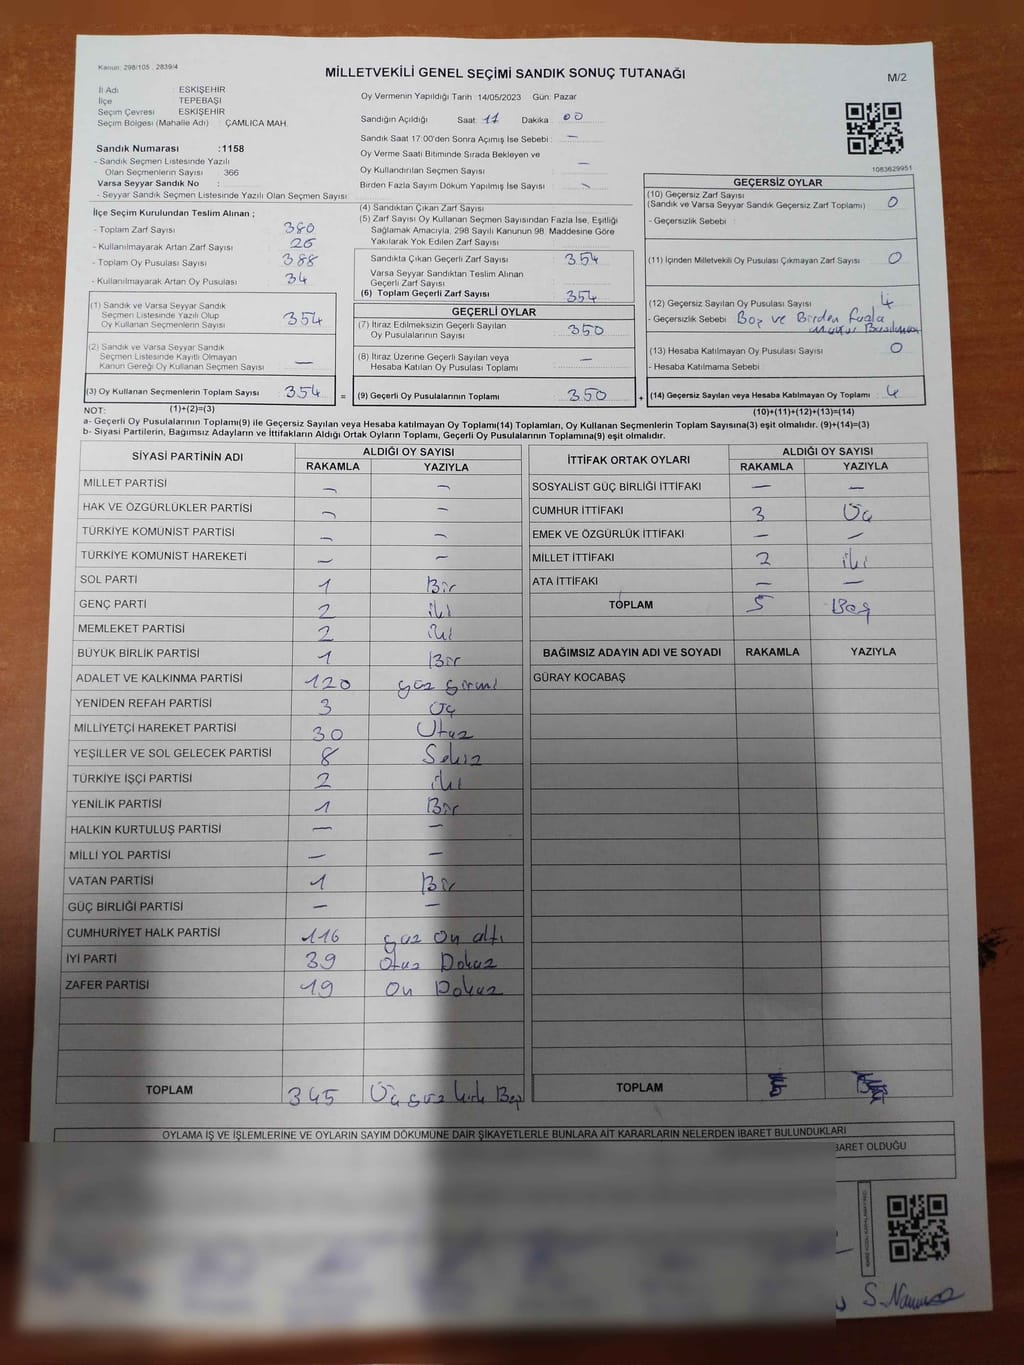 Kanun: 298/105 , 2839/4
MİLLETVEKİLİ GENEL SEÇİMİ SANDIK SONUÇ TUTANAĞI
M/2
İl Adı : ESKİŞEHİR
İlçe TEPEBAŞI
Seçim Çevresi ESKİŞEHİR
Seçim Bölgesi (Mahalle Adı) : ÇAMLICA MAH.
Oy Vermenin Yapıldığı Tarih 14/05/2023 Gün: Pazar
Sandığın Açıldığı Saat: 17 Dakika : 00
Sandık Saat 17:00'den Sonra Açımış İse Sebebi : —
Oy Verme Saati Bitiminde Sırada Bekleyen ve
Oy Kullandırılan Seçmen Sayısı —
Birden Fazla Sayım Döküm Yapılmış İse Sayısı -
1083629951
Sandık Numarası :1158
- Sandık Seçmen Listesinde Yazılı
Olan Seçmenlerin Sayısı 366
Varsa Seyyar Sandık No :
- Seyyar Sandık Seçmen Listesinde Yazılı Olan Seçmen Sayısı
İlçe Seçim Kurulundan Teslim Alınan ;
- Toplam Zarf Sayısı 380
- Kullanılmayarak Artan Zarf Sayısı 26
- Toplam Oy Pusulası Sayısı 388
- Kullanılmayarak Artan Oy Pusulası 34
(1) Sandık ve Varsa Seyyar Sandık
Seçmen Listesinde Yazılı Olup
Oy Kullanan Seçmenlerin Sayısı 354
(2) Sandık ve Varsa Seyyar Sandık
Seçmen Listesinde Kayıtlı Olmayan
Kanun Gereği Oy Kullanan Seçmen Sayısı —
(3) Oy Kullanan Seçmenlerin Toplam Sayısı 354 =
(4) Sandıktan Çıkan Zarf Sayısı
(5) Zarf Sayısı Oy Kullanan Seçmen Sayısından Fazla İse, Eşitliği
Sağlamak Amacıyla, 298 Sayılı Kanunun 98. Maddesine Göre
Yakılarak Yok Edilen Zarf Sayısı
Sandıkta Çıkan Geçerli Zarf Sayısı 354
Varsa Seyyar Sandıktan Teslim Alınan
Geçerli Zarf Sayısı
(6) Toplam Geçerli Zarf Sayısı 354
GEÇERLİ OYLAR
(7) İtiraz Edilmeksizin Geçerli Sayılan
Oy Pusulalarının Sayısı 350
(8) İtiraz Üzerine Geçerli Sayılan veya
Hesaba Katılan Oy Pusulası Toplamı —
(9) Geçerli Oy Pusulalarının Toplamı 350 +
GEÇERSİZ OYLAR
(10) Geçersiz Zarf Sayısı
(Sandık ve Varsa Seyyar Sandık Geçersiz Zarf Toplamı) 0
- Geçersizlik Sebebi :
(11) İçinden Milletvekili Oy Pusulası Çıkmayan Zarf Sayısı 0
(12) Geçersiz Sayılan Oy Pusulası Sayısı 4
- Geçersizlik Sebebi Boş ve Birden Fazla
(13) Hesaba Katılmayan Oy Pusulası Sayısı 0
- Hesaba Katılmama Sebebi
(14) Geçersiz Sayılan veya Hesaba Katılmayan Oy Toplamı 4
NOT: (1)+(2)=(3)
(10)+(11)+(12)+(13)=(14)
a- Geçerli Oy Pusulalarının Toplamı(9) ile Geçersiz Sayılan veya Hesaba Katılmayan Oy Toplamı(14) Toplamları, Oy Kullanan Seçmenlerin Toplam Sayısına(3) eşit olmalıdır. (9)+(14)=(3)
b- Siyasi Partilerin, Bağımsız Adayların ve İttifakların Aldığı Ortak Oyların Toplamı, Geçerli Oy Pusulalarının Toplamına(9) eşit olmalıdır.
SİYASİ PARTİNİN ADI ALDIĞI OY SAYISI
RAKAMLA YAZIYLA
MİLLET PARTİSİ — —
HAK VE ÖZGÜRLÜKLER PARTİSİ — —
TÜRKİYE KOMÜNİST PARTİSİ — —
TÜRKİYE KOMÜNİST HAREKETİ — —
SOL PARTİ 1 Bir
GENÇ PARTİ 2 iki
MEMLEKET PARTİSİ 2 iki
BÜYÜK BİRLİK PARTİSİ 1 Bir
ADALET VE KALKINMA PARTİSİ 120 yüz yirmi
YENİDEN REFAH PARTİSİ 3 Üç
MİLLİYETÇİ HAREKET PARTİSİ 30 Otuz
YEŞİLLER VE SOL GELECEK PARTİSİ 8 Sekiz
TÜRKİYE İŞÇİ PARTİSİ 2 iki
YENİLİK PARTİSİ 1 Bir
HALKIN KURTULUŞ PARTİSİ — —
MİLLİ YOL PARTİSİ — —
VATAN PARTİSİ 1 Bir
GÜÇ BİRLİĞİ PARTİSİ — —
CUMHURİYET HALK PARTİSİ 116 yüz on altı
İYİ PARTİ 39 Otuz Dokuz
ZAFER PARTİSİ 19 On Dokuz
TOPLAM 345 Üçyüz kırk Beş
İTTİFAK ORTAK OYLARI ALDIĞI OY SAYISI
RAKAMLA YAZIYLA
SOSYALİST GÜÇ BİRLİĞİ İTTİFAKI — —
CUMHUR İTTİFAKI 3 Üç
EMEK VE ÖZGÜRLÜK İTTİFAKI — —
MİLLET İTTİFAKI 2 iki
ATA İTTİFAKI — —
TOPLAM 5 Beş
BAĞIMSIZ ADAYIN ADI VE SOYADI RAKAMLA YAZIYLA
GÜRAY KOCABAŞ
TOPLAM
OYLAMA İŞ VE İŞLEMLERİNE VE OYLARIN SAYIM DÖKÜMÜNE DAİR ŞİKAYETLERLE BUNLARA AİT KARARLARIN NELERDEN İBARET BULUNDUKLARI
BARET OLDUĞU